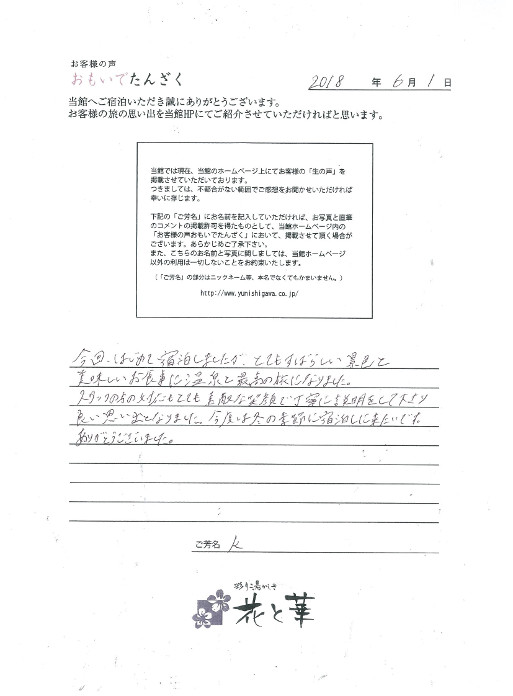 お客様の声
おもいでたんざく
2018 年 6 月 1 日
当館へご宿泊いただき誠にありがとうございます。
お客様の旅の思い出を当館HPにてご紹介させていただければと思います。
当館では現在、当館のホームページ上にてお客様の「生の声」を
掲載させていただいております。
つきましては、不都合がない範囲でご感想をお聞かせいただければ
幸いに存じます。
下記の「ご芳名」にお名前を記入していただければ、お写真と直筆
のコメントの掲載許可を得たものとして、当館ホームページ内の
「お客様の声おもいでたんざく」において、掲載させて頂く場合が
ございます。あらかじめご了承下さい。
また、こちらのお名前と写真に関しましては、当館ホームページ
以外の利用は一切しないことをお約束いたします。
（「ご芳名」の部分はニックネーム等、本名でなくてもかまいません。）
http://www.yunishigawa.co.jp/
今回、はじめて宿泊しましたが、とてもすばらしい景色と
美味しいお食事に温泉と最高の旅になりました。
スタッフの方の対応もとても素敵な笑顔で丁寧に説明をして下さり
良い思い出となりました。今度は冬の季節に宿泊しに来たいです。
ありがとうございました。
ご芳名 K
彩り湯かしき
花と華